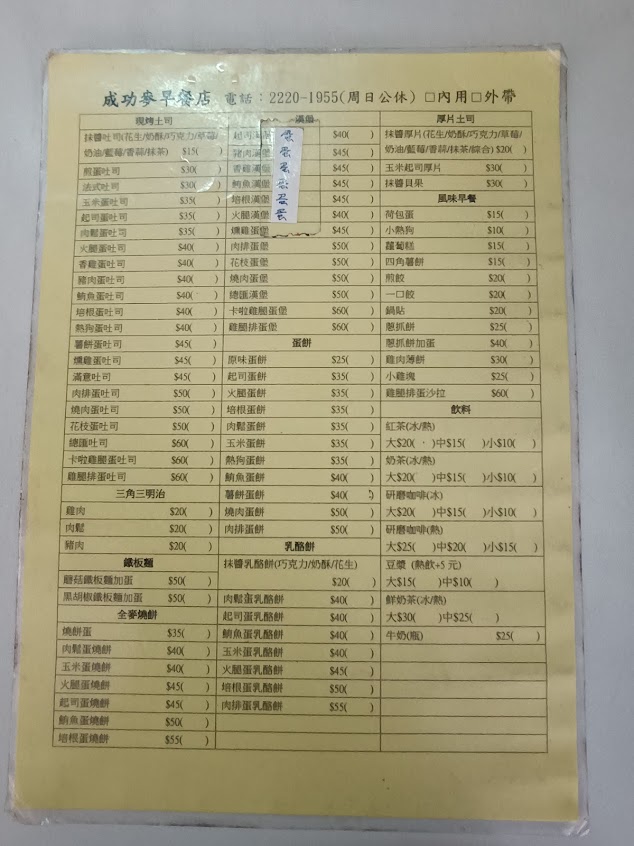 成功麥早餐店 電話：2220-1955(周日公休) □內用□外帶
現烤土司
抹醬吐司(花生/奶酥/巧克力/草莓/
奶油/藍莓/香蒜/抹茶) $15( )
煎蛋吐司 $30( )
法式吐司 $30( )
玉米蛋吐司 $35( )
起司蛋吐司 $35( )
肉鬆蛋吐司 $35( )
火腿蛋吐司 $40( )
香雞蛋吐司 $40( )
豬肉蛋吐司 $40( )
鮪魚蛋吐司 $40( )
培根蛋吐司 $40( )
熱狗蛋吐司 $40( )
薯餅蛋吐司 $45( )
燻雞蛋吐司 $45( )
滿意吐司 $45( )
肉排蛋吐司 $50( )
燒肉蛋吐司 $50( )
花枝蛋吐司 $50( )
總匯吐司 $60( )
卡啦雞腿蛋吐司 $60( )
雞腿排蛋吐司 $60( )
三角三明治
雞肉 $20( )
肉鬆 $20( )
豬肉 $20( )
鐵板麵
蘑菇鐵板麵加蛋 $50( )
黑胡椒鐵板麵加蛋 $50( )
全麥燒餅
燒餅蛋 $35( )
肉鬆蛋燒餅 $40( )
玉米蛋燒餅 $40( )
火腿蛋燒餅 $45( )
起司蛋燒餅 $45( )
鮪魚蛋燒餅 $50( )
培根蛋燒餅 $55( )
漢堡
起司漢 蛋 $40( )
豬肉漢堡 蛋 $45( )
香雞漢堡 蛋 $45( )
鮪魚漢堡 蛋 $45( )
培根漢堡 蛋 $45( )
火腿漢堡 蛋 $40( )
燻雞蛋堡 $45( )
肉排蛋堡 $50( )
花枝蛋堡 $50( )
燒肉蛋堡 $50( )
總匯漢堡 $50( )
卡啦雞腿蛋堡 $60( )
雞腿排蛋堡 $60( )
蛋餅
原味蛋餅 $25( )
起司蛋餅 $35( )
火腿蛋餅 $35( )
培根蛋餅 $35( )
肉鬆蛋餅 $35( )
玉米蛋餅 $35( )
熱狗蛋餅 $35( )
鮪魚蛋餅 $40( )
薯餅蛋餅 $40( )
燒肉蛋餅 $50( )
肉排蛋餅 $50( )
乳酪餅
抹醬乳酪餅(巧克力/奶酥/花生)
$20( )
肉鬆蛋乳酪餅 $40( )
起司蛋乳酪餅 $40( )
鮪魚蛋乳酪餅 $40( )
玉米蛋乳酪餅 $40( )
火腿蛋乳酪餅 $45( )
培根蛋乳酪餅 $50( )
肉排蛋乳酪餅 $55( )
厚片土司
抹醬厚片(花生/奶酥/巧克力/草莓/
奶油/藍莓/香蒜/抹茶/綜合) $20( )
玉米起司厚片 $30( )
抹醬貝果 $30( )
風味早餐
荷包蛋 $15( )
小熱狗 $10( )
蘿蔔糕 $15( )
四角薯餅 $15( )
煎餃 $20( )
一口餃 $20( )
鍋貼 $20( )
蔥抓餅 $25( )
蔥抓餅加蛋 $40( )
雞肉薄餅 $30( )
小雞塊 $25( )
雞腿排蛋沙拉 $60( )
飲料
紅茶(冰/熱)
大$20( )中$15( )小$10( )
奶茶(冰/熱)
大$20( )中$15( )小$10( )
研磨咖啡(冰)
大$20( )中$15( )小$10( )
研磨咖啡(熱)
大$25( )中$20( )小$15( )
豆漿 (熱飲+5 元)
大$15( )中$10( )
鮮奶茶(冰/熱)
大$30( )中$25( )
牛奶(瓶) $25( )